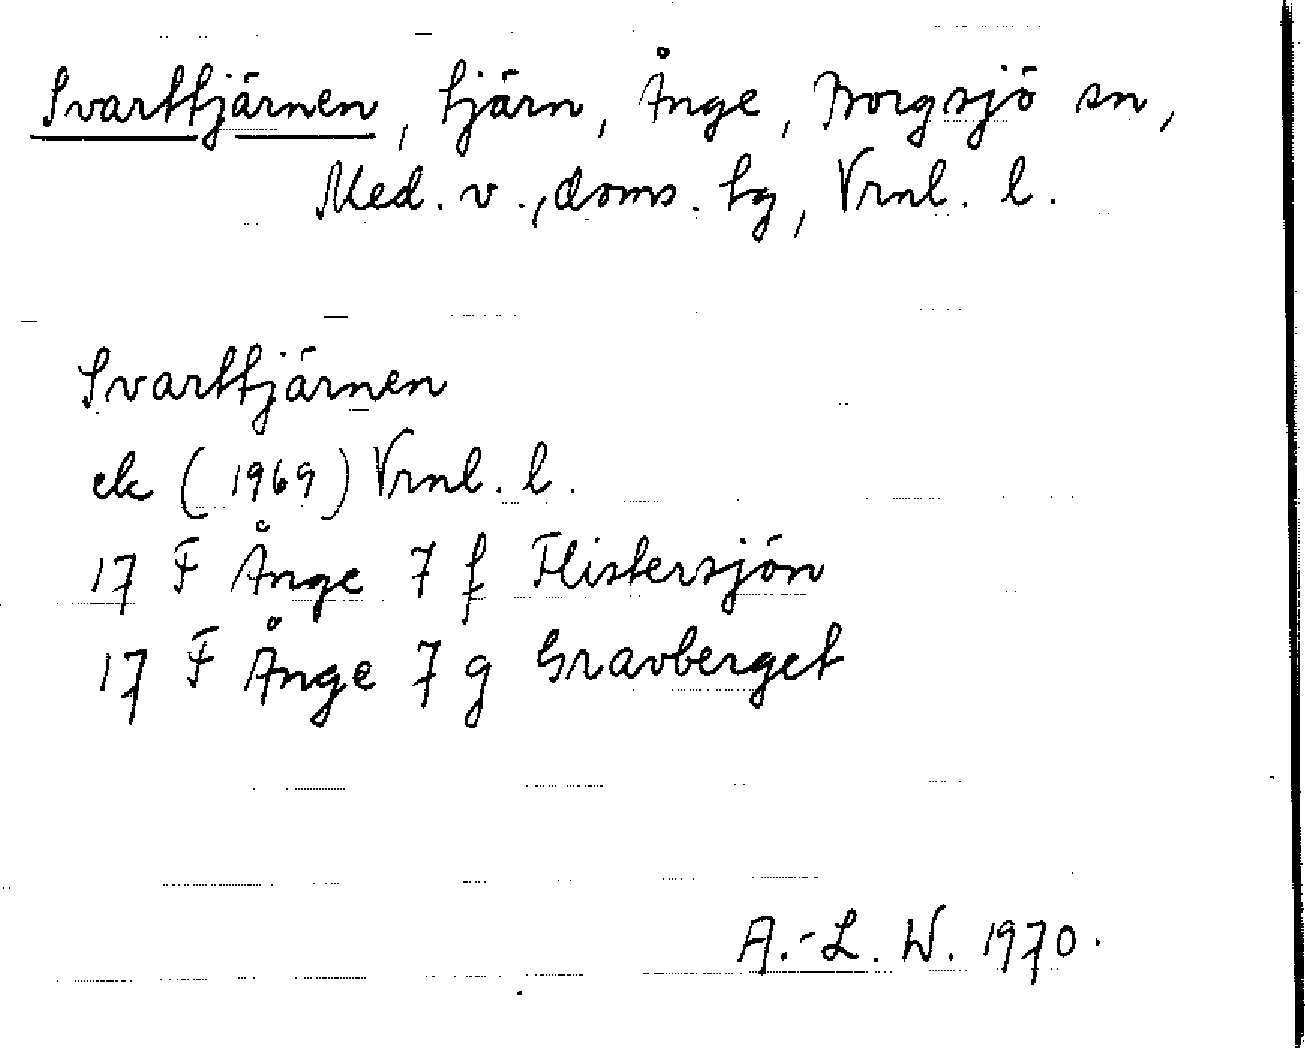 Svarttjärnen, tjärn, Ånge, Borgsjö sn,
Med. v., doms. tg, Vrnl. l.
Svarttjärnen
ek (1969) Vrnl. l.
17 F Ånge 7 f Flistersjön
17 F Ånge 7 g Gravberget
A.-L. W. 1970.